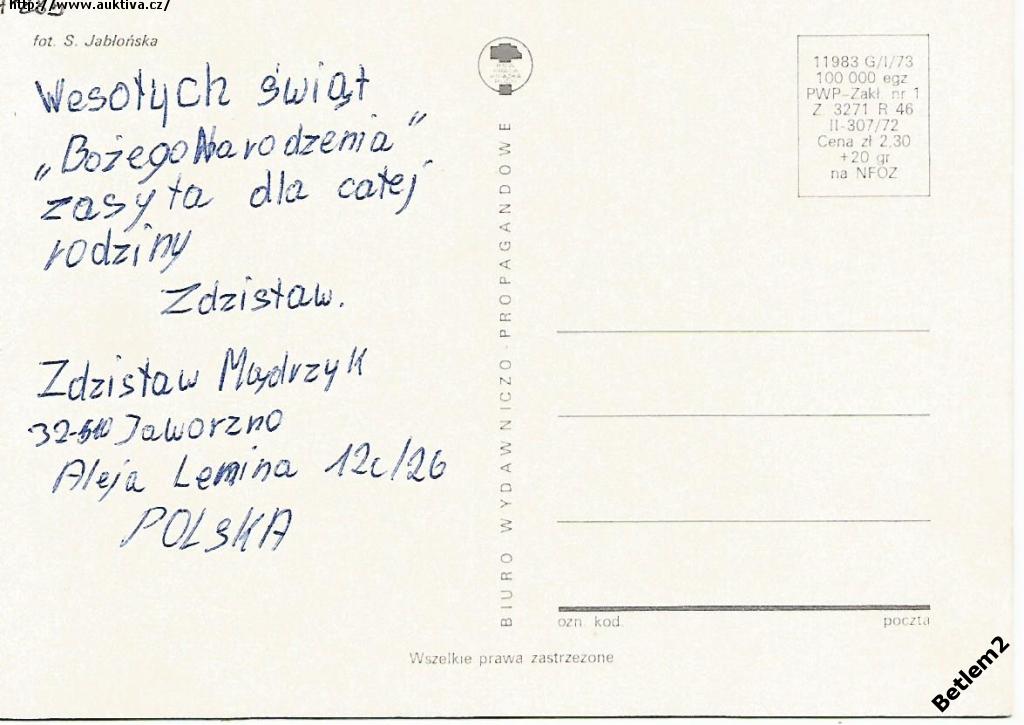 http://www.auktiva.cz/
fot. S. Jabłońska
Wesołych świąt
„Bożego Narodzenia"
zasyła dla całej
rodziny
Zdzisław.
Zdzisław Mądrzyk
32-510 Jaworzno
Aleja Lenina 12c/26
POLSKA
BIURO WYDAWNICZO-PROPAGANDOWE
11983 G/I/73
100 000 egz
PWP-Zakł. nr 1
Z. 3271 R 46
II-307/72
Cena zł 2,30
+20 gr
na NFOZ
ozn. kod.
poczta
Wszelkie prawa zastrzeżone
Betlem2